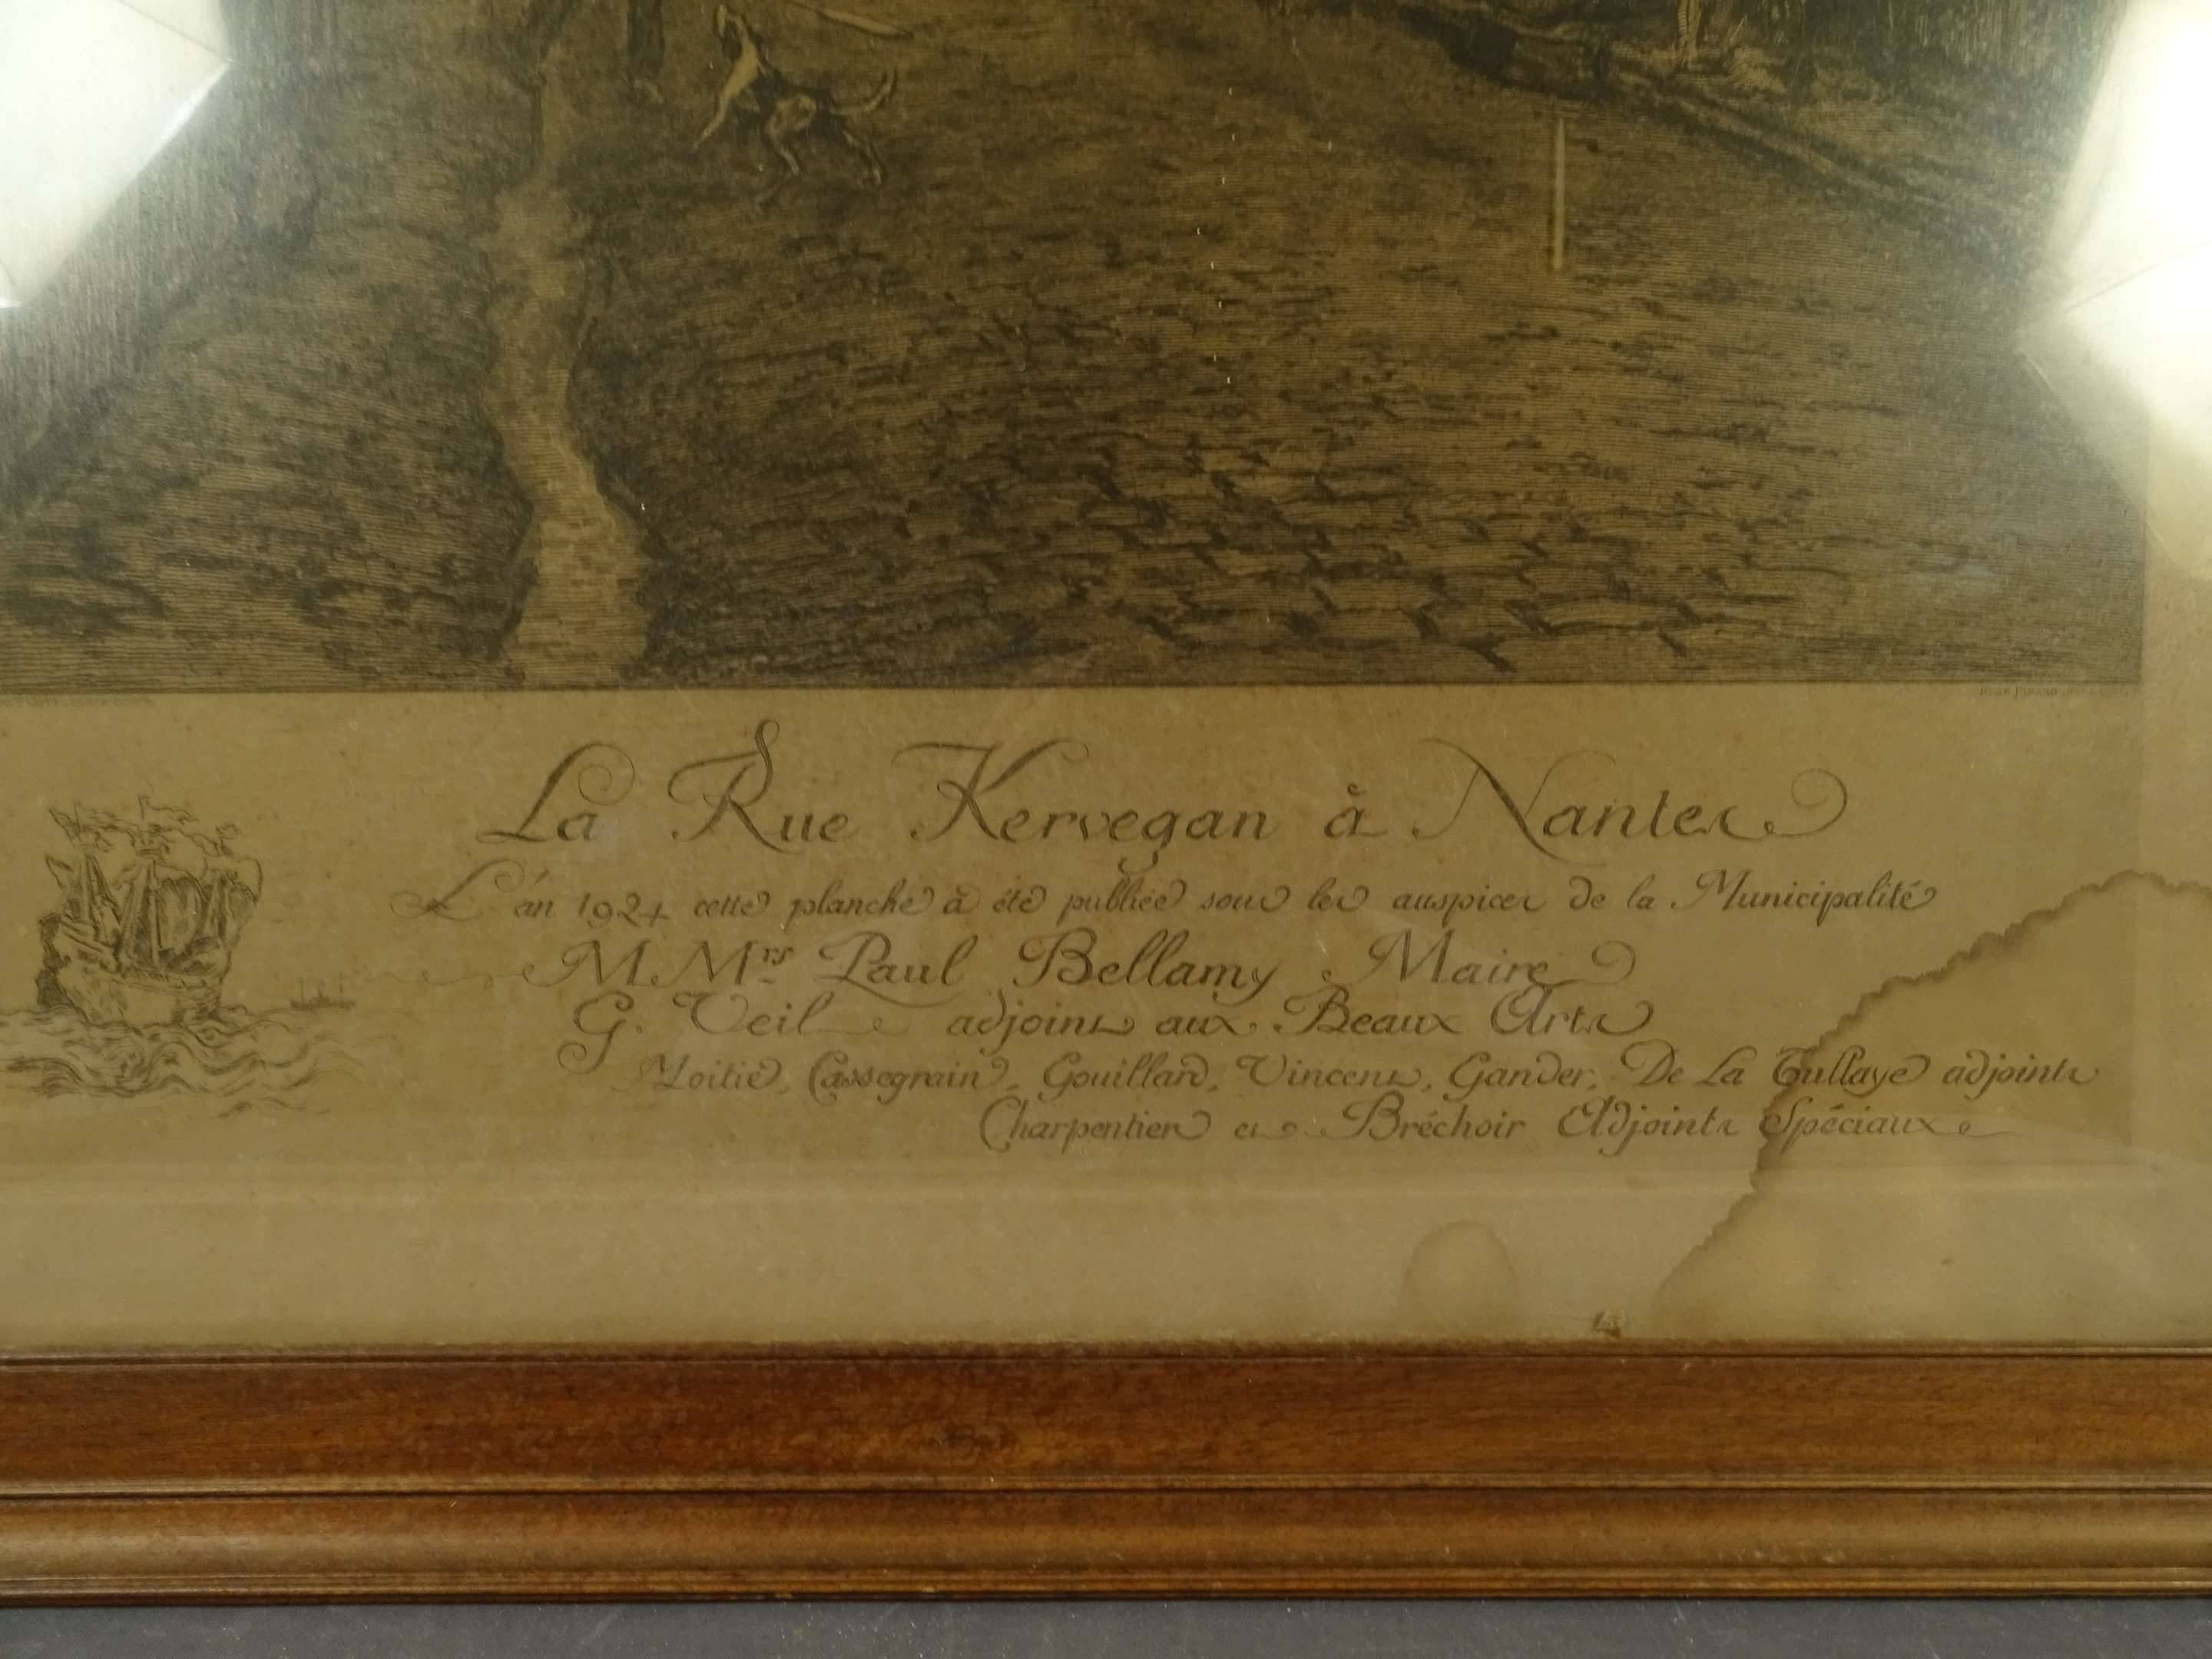 La Rue Kervegan à Nantes
L'an 1924 cette planche a été publiée sous les auspices de la Municipalité
M.Mrs Paul Bellamy Maire
G. Veil adjoint aux Beaux Arts
Moitié, Cassegrain, Gouillard, Vincent, Gander, De La Tullaye adjoints
Charpentier et Bréchoir Adjoints Spéciaux